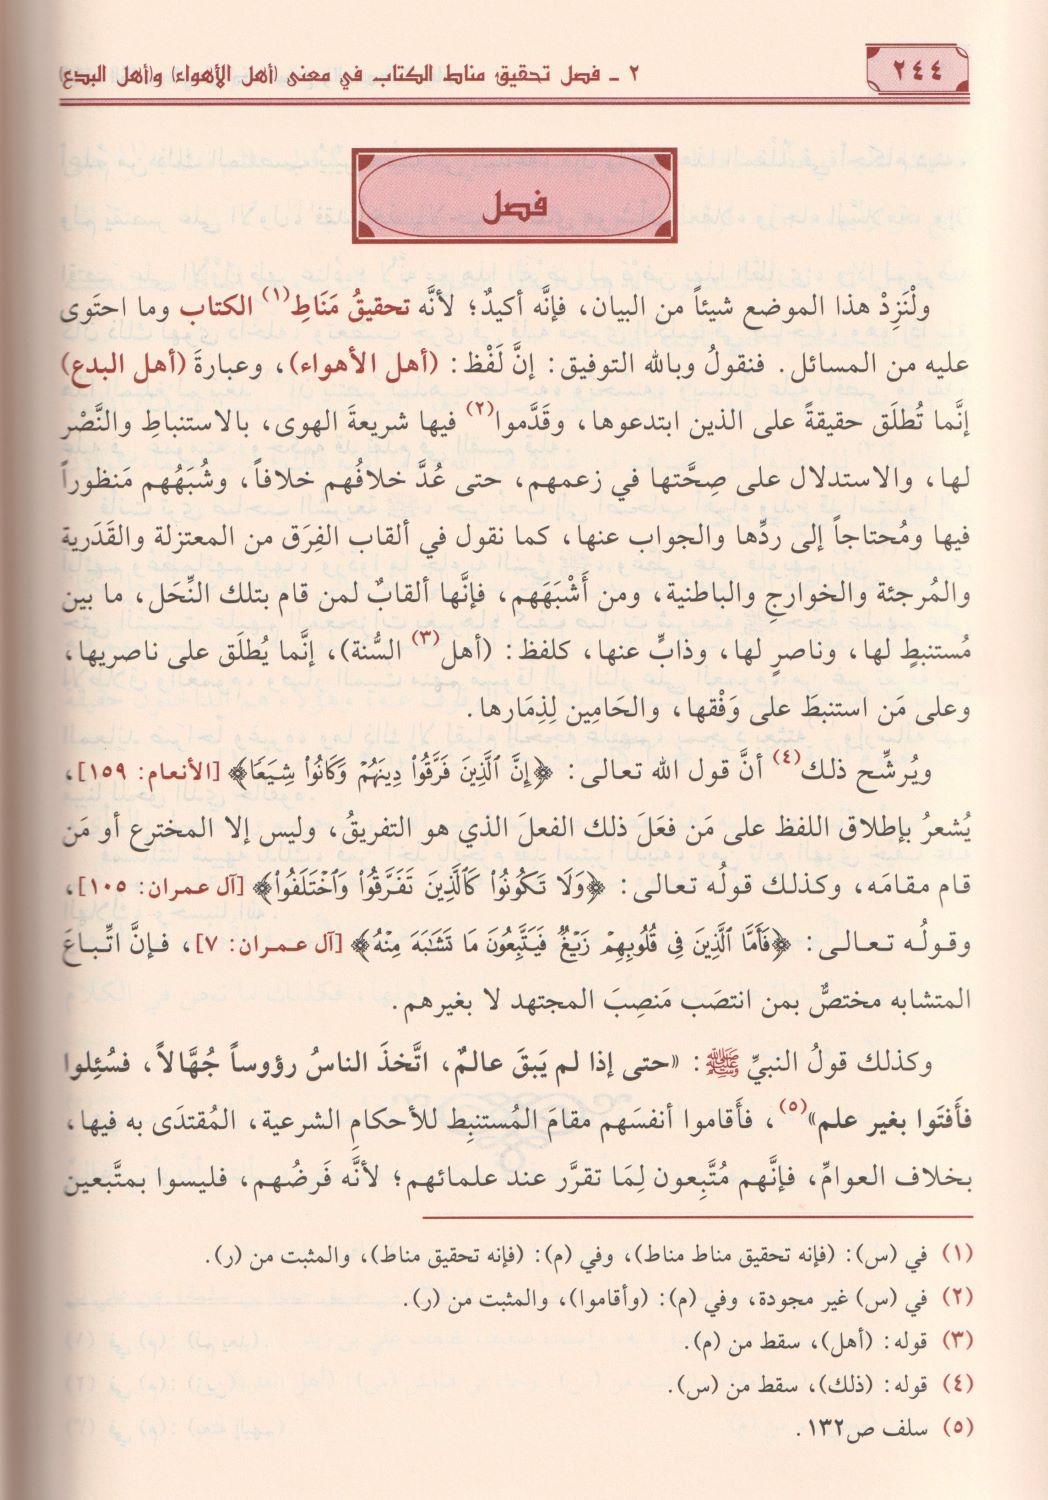 ٢٤٤
٢ ـ فصل تحقيق مناط الكتاب في معنى (أهل الأهواء) و(أهل البدع)
فصل
ولْنَزِدْ هذا الموضع شيئاً من البيان، فإنَّه أكيدٌ؛ لأنَّه تحقيقُ مَنَاطِ(١) الكتاب وما احتَوى
عليه من المسائل. فنقولُ وبالله التوفيق: إنَّ لَفْظ: (أهل الأهواء)، وعبارةَ (أهل البدع)
إنَّما تُطلَق حقيقةً على الذين ابتدعوها، وقَدَّموا(٢) فيها شريعةَ الهوى، بالاستنباطِ والنَّصْر
لها، والاستدلال على صِحَّتها في زعمهم، حتى عُدَّ خلافُهم خلافاً، وشُبَهُهم مَنظوراً
فيها ومُحتاجاً إلى ردِّها والجواب عنها، كما نقول في ألقاب الفِرَق من المعتزلة والقَدَرية
والمُرجئة والخوارجِ والباطنية، ومن أَشْبَهَهم، فإنَّها ألقابٌ لمن قام بتلك النِّحَل، ما بين
مُستنبطٍ لها، وناصرٍ لها، وذابٍّ عنها، كلفظ: (أهل(٣) السُّنة)، إنَّما يُطلَق على ناصريها،
وعلى مَن استنبطَ على وَفْقها، والحَامِين لِذِمَارها.
ويُرشِّح ذلك(٤) أنَّ قول الله تعالى: ﴿إِنَّ ٱلَّذِينَ فَرَّقُواْ دِينَهُمۡ وَكَانُواْ شِيَعٗا﴾ [الأنعام: ١٥٩]،
يُشعرُ بإطلاق اللفظ على مَن فعَلَ ذلك الفعلَ الذي هو التفريقُ، وليس إلا المخترع أو مَن
قام مقامَه، وكذلك قولُه تعالى: ﴿وَلَا تَكُونُواْ كَٱلَّذِينَ تَفَرَّقُواْ وَٱخۡتَلَفُواْ﴾ [آل عمران: ١٠٥]،
وقولُه تعالى: ﴿فَأَمَّا ٱلَّذِينَ فِي قُلُوبِهِمۡ زَيۡغٞ فَيَتَّبِعُونَ مَا تَشَٰبَهَ مِنۡهُ﴾ [آل عمران: ٧]، فإنَّ اتِّباعَ
المتشابه مختصٌّ بمن انتصَب مَنصِبَ المجتهد لا بغيرهم.
وكذلك قولُ النبيِّ ﷺ: «حتى إذا لم يَبقَ عالمٌ، اتَّخذَ الناسُ رؤوساً جُهَّالاً، فسُئِلوا
فأَفتَوا بغير علم»(٥)، فأَقاموا أنفسَهم مقامَ المُستنبِط للأحكامِ الشرعية، المُقتدَى به فيها،
بخلاف العوامِّ، فإنَّهم مُتَّبِعون لِمَا تقرَّر عند علمائهم؛ لأنَّه فَرضُهم، فليسوا بمتَّبعين
(١) في (س): (فإنه تحقيق مناط مناط)، وفي (م): (فإنه تحقيق مناط)، والمثبت من (ر).
(٢) في (س) غير مجودة، وفي (م): (وأقاموا)، والمثبت من (ر).
(٣) قوله: (أهل)، سقط من (م).
(٤) قوله: (ذلك)، سقط من (س).
(٥) سلف ص١٣٢.